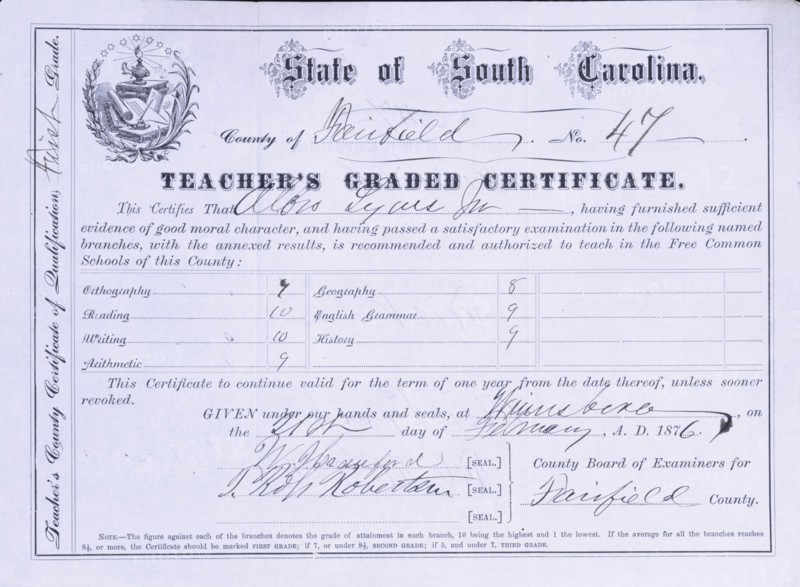 State of South Carolina.
County of Fairfield. No. 47
TEACHER'S GRADED CERTIFICATE.
This Certifies That Lyons Jr, having furnished sufficient
evidence of good moral character, and having passed a satisfactory examination in the following named
branches, with the annexed results, is recommended and authorized to teach in the Free Common
Schools of this County:
Orthography Geography 8
Reading 10 English Grammar 9
Writing 10 History 9
Arithmetic 9
This Certificate to continue valid for the term of one year from the date thereof, unless sooner
revoked.
GIVEN under our hands and seals, at Winnsboro, on
the day of February, A. D. 1876.
W. Crawford [SEAL.] County Board of Examiners for
Ross Robertson [SEAL.] Fairfield County.
[SEAL.]
NOTE.—The figure against each of the branches denotes the grade of attainment in such branch, 10 being the highest and 1 the lowest. If the average for all the branches reaches
8½, or more, the Certificate should be marked FIRST GRADE; if 7, or under 8½, SECOND GRADE; if 5, and under 7, THIRD GRADE.
Teacher's County Certificate of Qualification, First Grade.